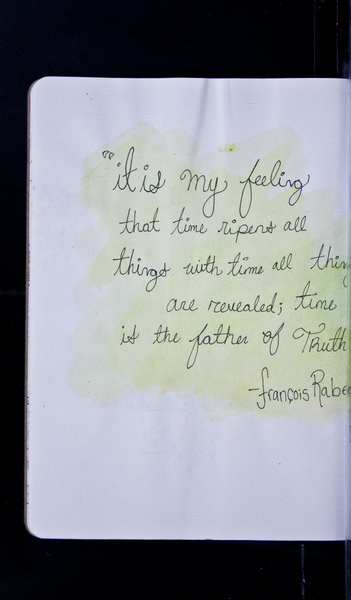 "it is my feeling
that time ripens all
things with time all thing
are revealed; time
is the father of Truth
-françois Rabe